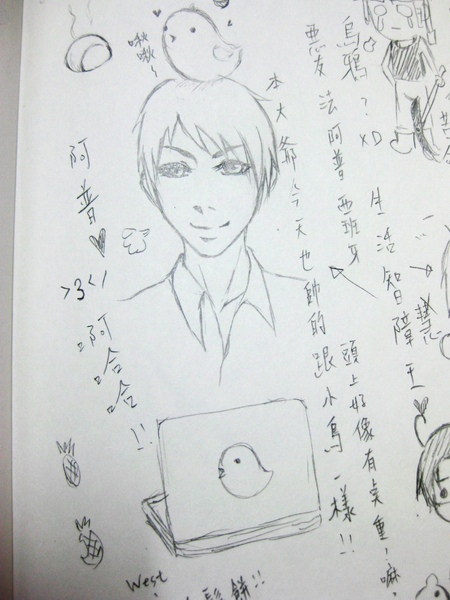 烏鴉?
XD
生活智障王
慧
頭上好像有点重!嘛.
惡友 法 阿普 西班牙
本大爺今天也帥的跟小鳥一樣!!
啾啾~
阿普♥
>3</
啊哈哈!!
West
鬆餅!!